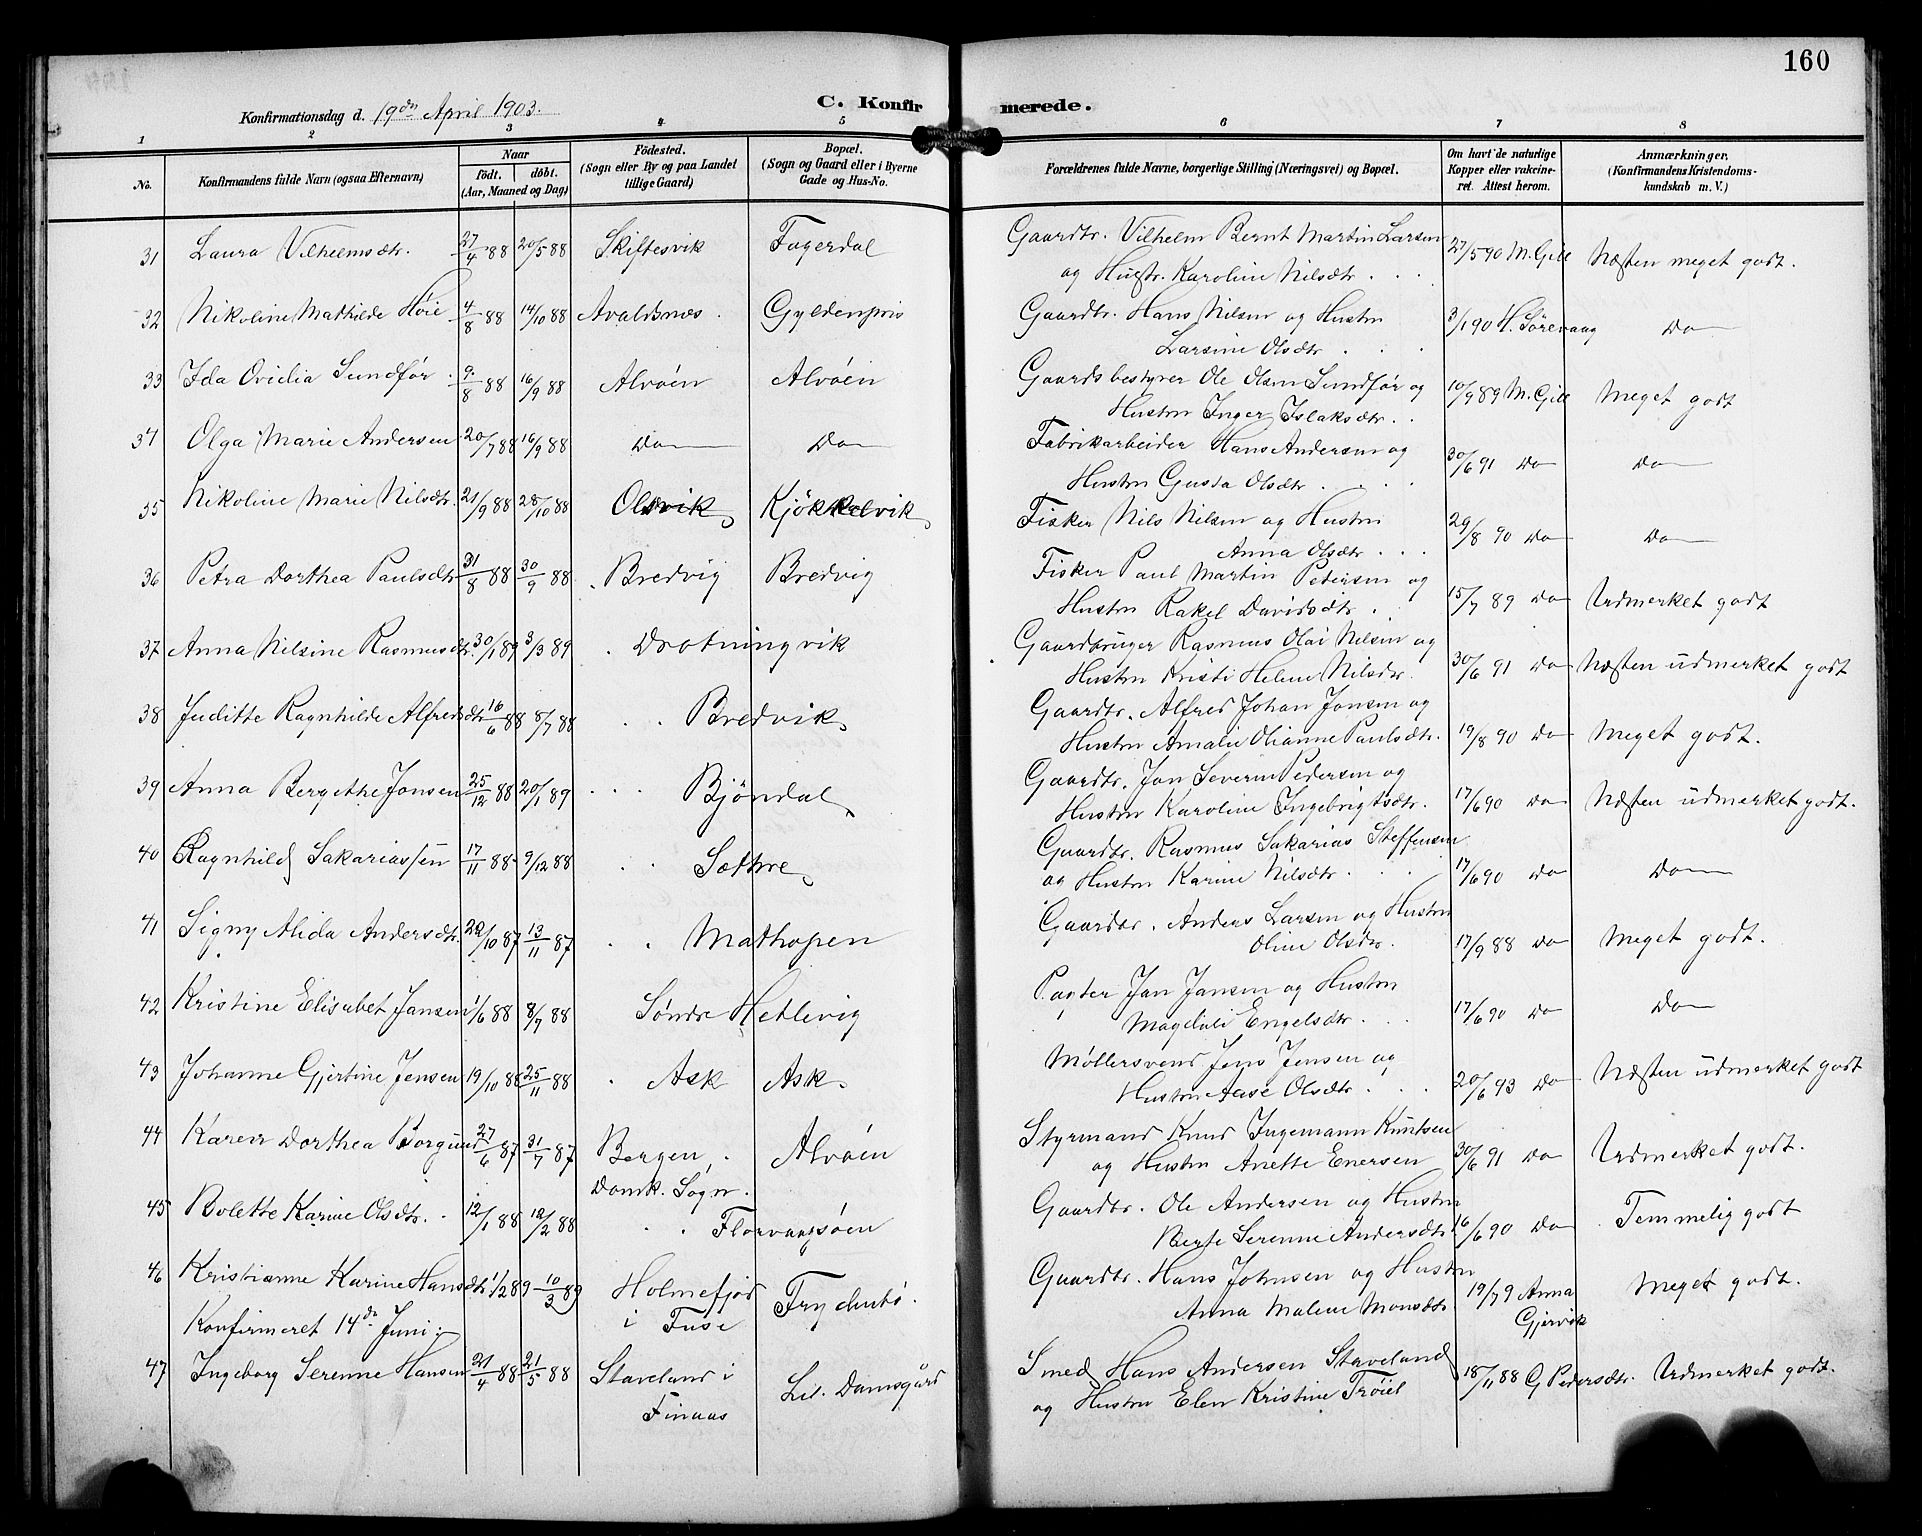 160
Konfirmationsdag d. 19de April 1903.
C. Konfirmerede.
1 2 3 4 5 6 7 8
No.
Konfirmandens fulde Navn (ogsaa Efternavn)
Naar
födt. döbt.
(Aar, Maaned og Dag)
Födested.
(Sogn eller By og paa Landet
tillige Gaard)
Bopæl.
(Sogn og Gaard eller i Byerne
Gade og Hus-No.
Forældrenes fulde Navne, borgerlige Stilling (Næringsvei) og Bopæl.
Om havt de naturlige
Kopper eller vakcine-
ret. Attest herom.
Anmærkninger.
(Konfirmandens Kristendoms-
kundskab m. V.)
31 Laura Vilhelmsdtr. 27/4 88 20/5 88 Skiftesvik Fagerdal Gaardbr. Vilhelm Bernt Martin Larsen 27/5 90 M. Gill Næsten meget godt.
og Hustr. Karoline Nilsdtr . . .
32 Nikoline Mathilde Høie 4/8 88 14/10 88 Avaldsnæs . Gyldenpris Gaardbr. Hans Nilsen og Hustru 3/1 90 H. Sörevaag Do
Larsine Olsdtr . . .
33 Ida Ovidia Sundför . 9/8 88 16/9 88 Alvöen Alvöen Gaardsbestyrer Ole Olsen Sundför og 10/9 89 M. Gill Meget godt
Hustru Inger Islaksdtr. .
34 Olga Marie Andersen 20/7 88 16/9 88 Do Do Fabrikarbeider Hans Andersen og 30/6 91 Do Do
Hustru Gusta Olsdtr . . . .
35 Nikoline Marie Nilsdtr. 21/9 88 28/10 88 Olsvik Kjökkelvik Fisker Nils Nilsen og Hustru 29/8 90 Do Do
Anna Olsdtr . . .
36 Petra Dorthea Paulsdtr 31/8 88 30/9 88 . Bredvig Bredvig Fisker Paul Martin Petersen og 15/7 89 Do Udmerket godt
Hustru Rakel Davidsdtr .
37 Anna Nilsine Rasmusdtr. 30/1 89 3/3 89 . Drotningvik Gaardbruger Rasmus Olai Nilsen og 30/6 91 Do Næsten udmerket godt
Hustru Kristi Helene Nilsdtr.
38 Juditte Ragnhilde Alfredsdtr 16/6 88 8/7 88 . . Bredvik Gaardbr. Alfred Johan Jonsen og 19/8 90 Do Meget godt.
Hustru Amalie Olianne Paulsdtr.
39 Anna Bergithe Jonsen 25/12 88 20/1 89 . . . Bjöndal Gaardbr. Jon Severin Pedersen og 17/6 90 Do Næsten udmerket godt.
Hustru Karoline Ingebrigtsdtr.
40 Ragnhild Sakariassen 17/11 88 9/12 88 . . Sæthre Gaardbr. Rasmus Sakarias Steffensen 17/6 90 Do Do
og Hustru Karine Nilsdtr . . .
41 Signy Alida Andersdtr. 22/10 87 13/11 87 . . Mathopen Gaardbr. Anders Larsen og Hustru 17/9 88 Do Meget godt.
Oline Olsdtr.
42 Kristine Elisabet Jansen 1/6 88 8/7 88 Söndre Hetlevig Pagter Jan Jansen og Hustru 17/6 90 Do Do
Magdeli Engelsdtr . . .
43 Johanne Gjertine Jensen 19/10 88 25/11 88 . Ask Ask. Möllersvend Jens Jensen og 20/6 93 Do Næsten udmerket godt
Hustru Aase Olsdtr . . .
44 Karen Dorthea Borgund 27/6 87 31/7 87 Bergen, . Alvöen Styrmand Knud Ingemann Kuntsen 30/6 91 Do Udmerket godt.
Domk. Sogn. og Hustru Anette Enersen
45 Bolette Karine Olsdtr. . 12/1 88 12/2 88 . . Florvaagsöen Gaardbr. Ole Andersen og Hustru 16/6 90 Do . Temmelig godt
Berte Serenne Andersdtr
46 Kristianne Karine Hansdtr 1/1 289 10/3 89 Holmefjord Frydenbö. Gaardbr. Hans Johnsen og Hustru 19/79 Anna Meget godt.
i Fuse Anna Malene Monsdtr Gjervik
Konfirmeret 14de Juni:
47 Ingeborg Serenne Hansen 21/4 88 21/5 88 Staveland i Lil. Damsgård Smed Hans Andersen Staveland 18/11 88 G Pedersdtr. Udmerket godt.
Finaas og Hustru Elen Kristine Tröiel